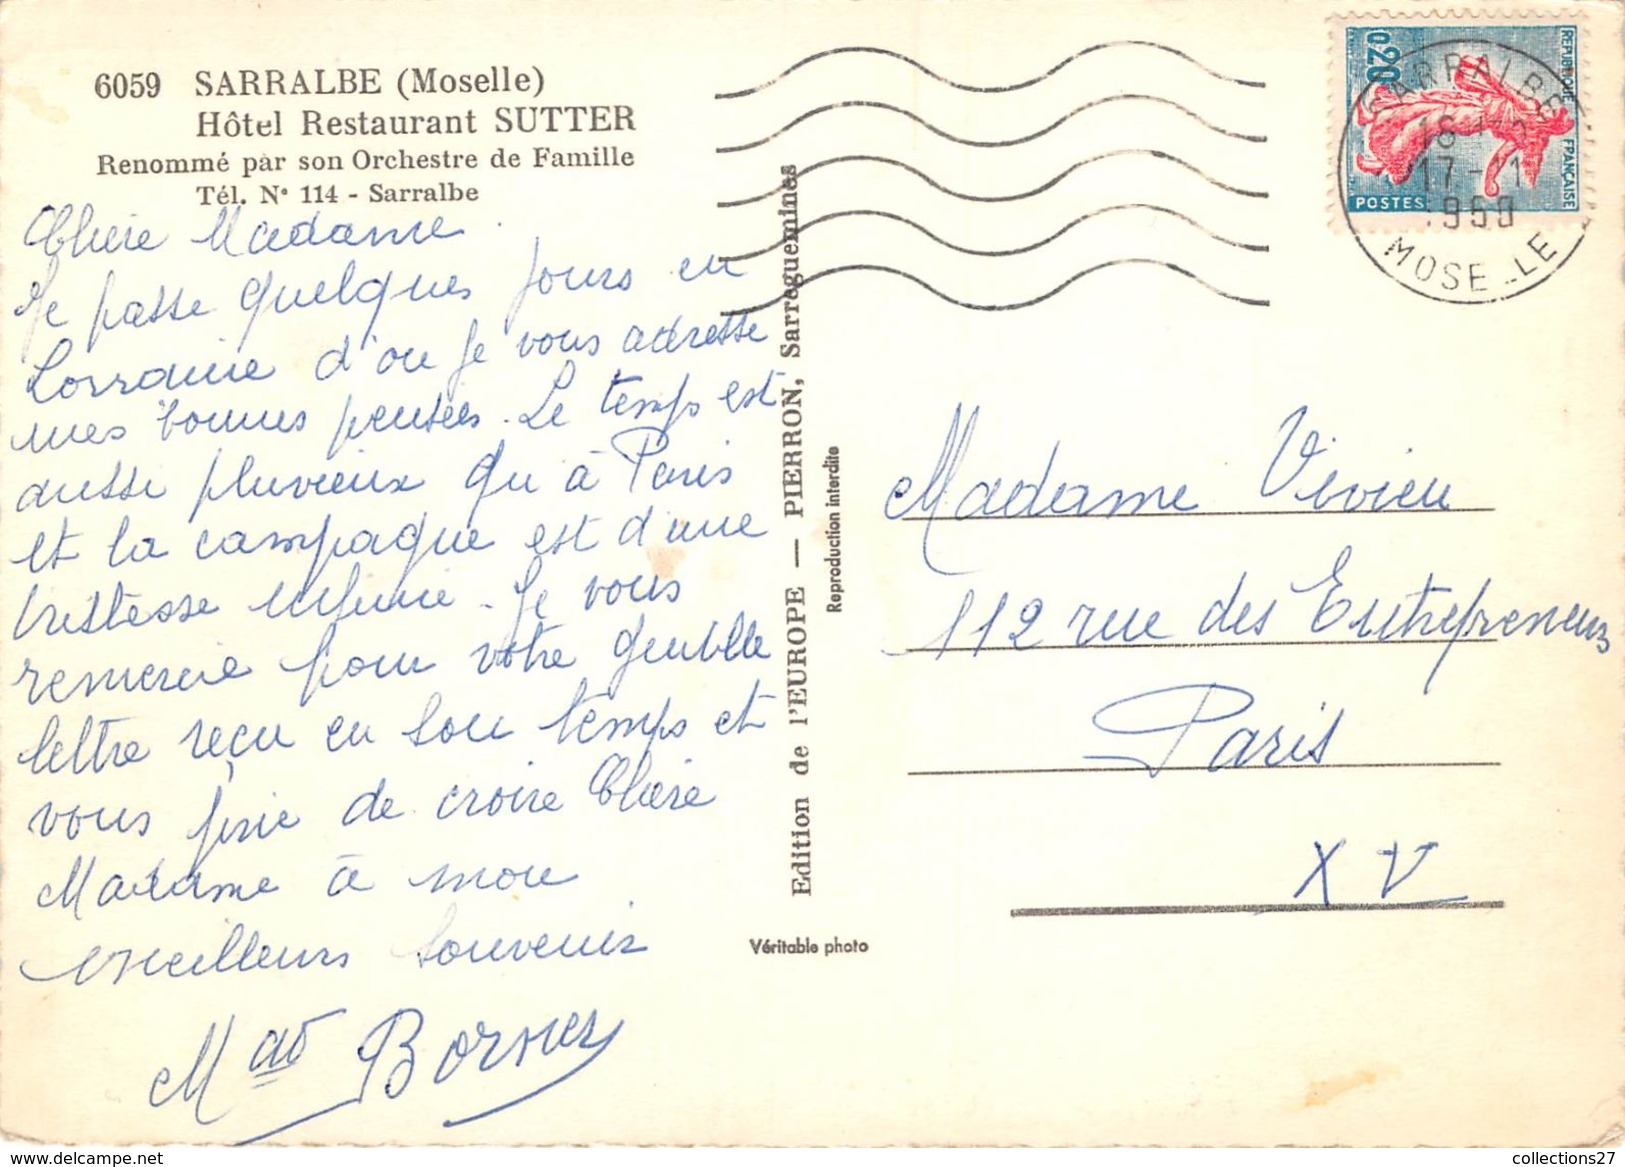 6059 SARRALBE (Moselle)
Hôtel Restaurant SUTTER
Renommé par son Orchestre de Famille
Tél. N° 114 - Sarralbe
Chère Madame.
Je passe quelques jours en
Lorraine d'ou je vous adresse
mes bonnes pensées. Le temps est
aussi pluvieux qu'à Paris
et la campagne est d'une
tristesse infinie. Je vous
remercie pour votre gentille
lettre reçu en son temps et
vous prie de croire Chère
Madame à mon
meilleurs souvenir
Mad
Edition de l'EUROPE — PIERRON, Sarreguemines
Reproduction interdite
Véritable photo
0,20
REPUBLIQUE FRANÇAISE
POSTES
SARRALBE
17 - 11
MOSELLE
Madame Vivien
112 rue des Entrepreneurs
Paris
XV
collections27